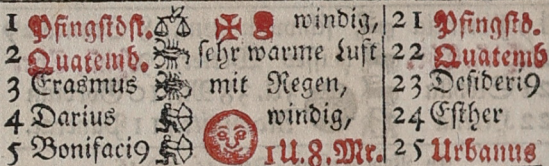 1 Pfingstdst. windig, 21 Pfingstd.
2 Quatemb. sehr warme Luft 22 Quatemb
3 Erasmus mit Regen, 23 Desideri9
4 Darius windig, 24 Esther
5 Bonifaci9 1 U. 8. Mr. 25 Urbanus